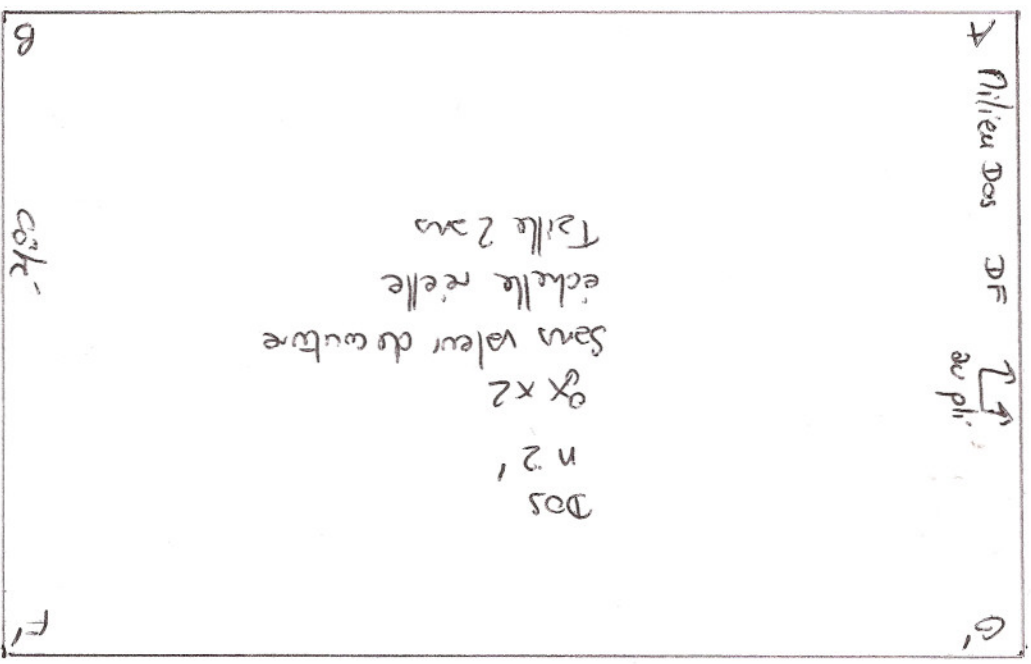 G'
F'
DOS
n 2'
x 2
Sans valeur de couture
échelle réelle
Taille 2 ans
au pli
Milieu Dos DF
Côté
A
B